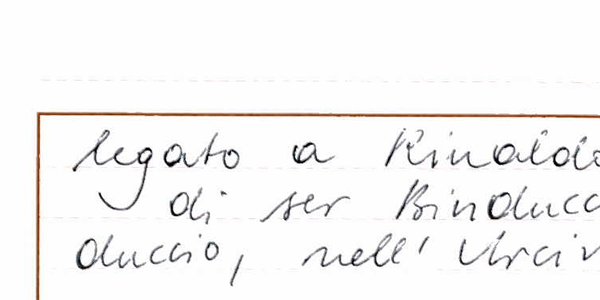 legato a Rinaldo
di ser Binducc
duccio, nell'